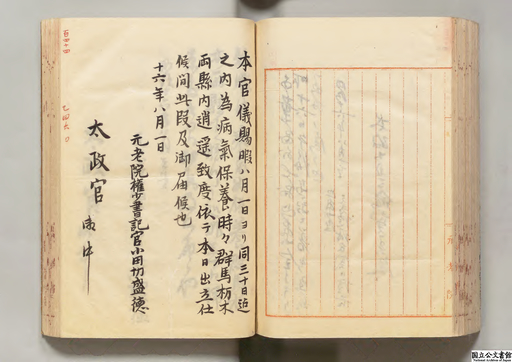 本官儀賜暇八月一日ヨリ同三十日迄
之内為病氣保養時々群馬栃木
両縣内逍遥致度依テ本日出立仕
候間此段及御届候也
十六年八月一日
元老院権少書記官小田切盛徳
太政官
御中
国立公文書館
National Archives of Japan